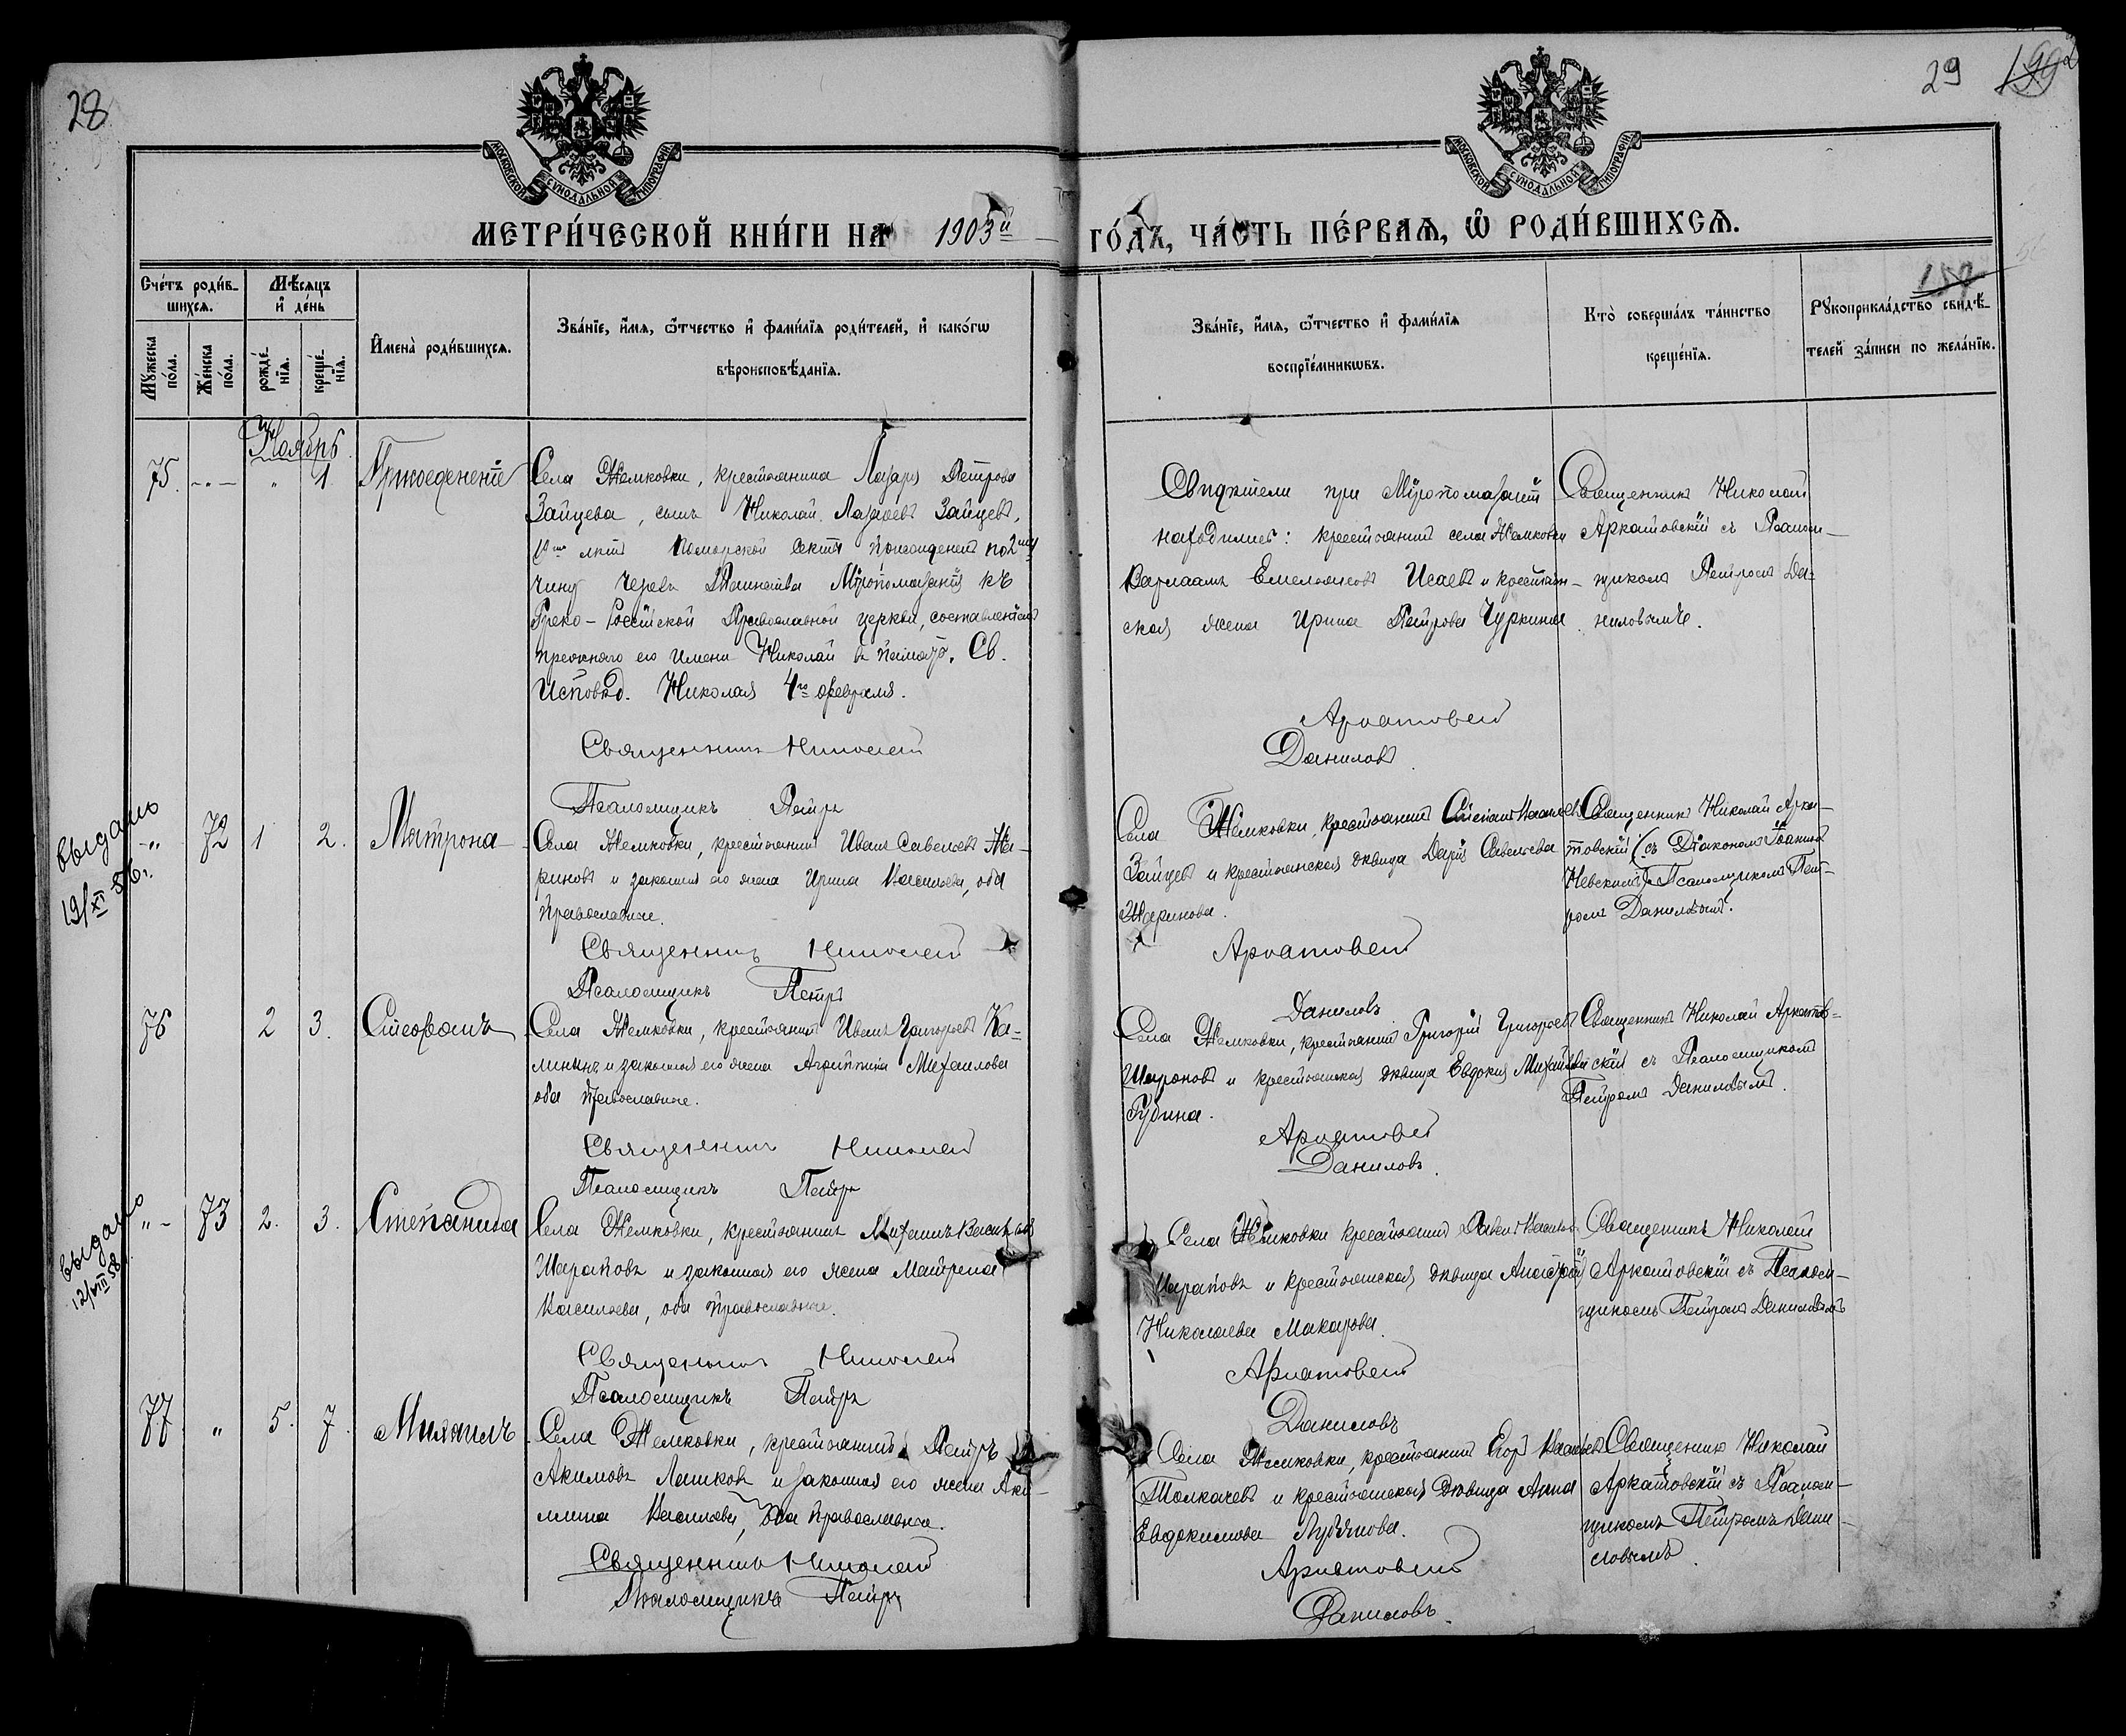 28
29
МОСКОВСКОЙ СѴНОДАЛЬНОЙ ТИПОГРАФІИ
МОСКОВСКОЙ СѴНОДАЛЬНОЙ ТИПОГРАФІИ
МЕТРИ́ЧЕСКОЙ КНИ́ГИ НА 1903й
ГО́ДЪ, ЧА́СТЬ ПЕ́РВАѦ, Ѽ РОДИ́ВШИХСѦ.
Сче́тъ роди́в-
шихсѧ.
Мѣ́сѧцъ
и҆ де́нь
Мꙋ́жеска по́ла.
Же́нска по́ла.
рожде́-
нїѧ.
креще́-
нїѧ.
И҆мена̀ роди́вшихсѧ.
Зва́нїе, и҆́мѧ, ѻ҆́тчество и҆ фами́лїѧ роди́телей, и҆ како́гѡ
вѣроисповѣ́данїѧ.
Зва́нїе, и҆́мѧ, ѻ҆́тчество и҆ фами́лїѧ
воспрїе́мникѡвъ.
Кто̀ соверша́лъ та́инство
креще́нїѧ.
157
Рꙋкоприкла́дство свидѣ́-
телей за́писи по жела́нїю.
Ноябрь
75. 1 Присоединеніе
Села Жемковки, крестьянина Лазаря Петрова
Зайцева, сынъ Николай Лазаревъ Зайцевъ,
лѣтъ Поморской Секты присоединенъ по 2му
чину черезъ Таинства Мѵропомазанія къ
Греко-Россійской Православной церкви, съ оставленіемъ
прежняго его имени Николай въ память Св.
Исповѣд. Николая 4го февраля.
Священникъ Николай
Псаломщикъ Петръ
Свидѣтели при Мѵропомазаніи
находились: крестьянинъ села Жемковки
Варлаамъ Емельяновъ Исаевъ и крестьян-
ская жена Ирина Петрова Чуркина
Аркатовскій
Даниловъ
Священникъ Николай
Аркатовскій съ Псалом-
щикомъ Петромъ Да-
ниловымъ.
выдано
19/XI 56г.
" 72 1 2. Матрона
Села Жемковки, крестьянинъ Иванъ Савельевъ Ша-
риновъ и законная его жена Ирина Васильева, оба
Православные.
Священникъ Николай
Псаломщикъ Петръ
Села Жемковки, крестьянинъ
Зайцевъ и крестьянская дѣвица Дарія Савельева
Шаринова.
Аркатовскій
Даниловъ
Священникъ Николай Арка-
товскій (съ Діакономъ Іоанномъ
Невскимъ) Псаломщикомъ Пет-
ромъ Даниловымъ.
76 2 3. Стефанъ
Села Жемковки, крестьянинъ Иванъ Григорьевъ Ка-
лининъ и законная его жена Агриппина Михаилова
оба Православные.
Священникъ Николай
Псаломщикъ Петръ
Села Жемковки, крестьянинъ Григорій Григорьевъ
Шароновъ и крестьянская дѣвица Евдокія Михайлова
Губина.
Аркатовскій
Даниловъ.
Священникъ Николай Аркатов-
скій съ Псаломщикомъ
Петромъ Даниловымъ.
выдано
12/VIII 58
" 73 2. 3. Степанида
Села Жемковки, крестьянинъ Михаилъ Васильевъ
Шараповъ и законная его жена Матрена
Васильева, оба православные.
Священникъ Николай
Псаломщикъ Петръ
Села Жемковки крестьянинъ Павелъ
Шараповъ и крестьянская дѣвица
Николаева Макарова.
Аркатовскій
Даниловъ
Священникъ Николай
Аркатовскій съ Псалом-
щикомъ Петромъ Даниловымъ
77 " 5. 7. Михаилъ
Села Жемковки, крестьянинъ Петръ
Акимовъ Лашковъ и законная его жена Аку-
лина Васильева, оба православные.
Священникъ Николай
Псаломщикъ Петръ
Села Жемковки, крестьянинъ Егоръ Васильевъ
Толкачевъ и крестьянская дѣвица Анна
Евдокимова Лубянова.
Аркатовскій
Даниловъ.
Священникъ Николай
Аркатовскій съ Псалом-
щикомъ Петромъ Дани-
ловымъ.